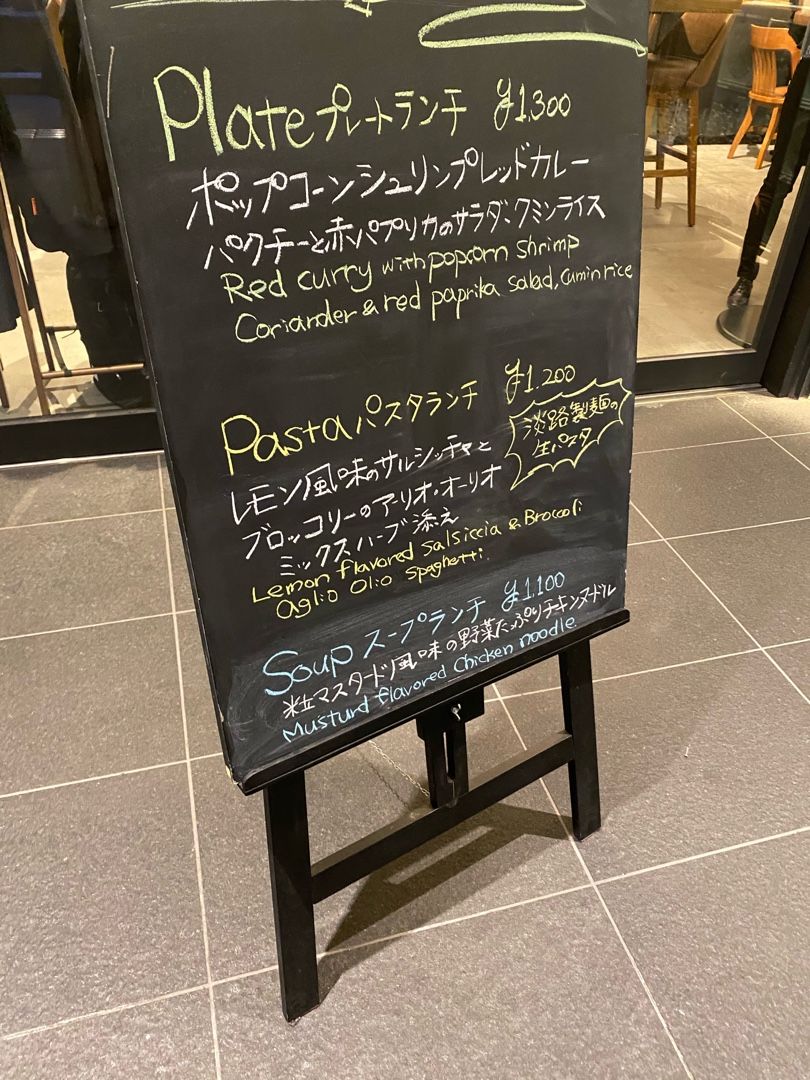 Plate プレートランチ ¥1,300
ポップコーンシュリンプレッドカレー
パクチーと赤パプリカのサラダ、クミンライス
Red curry with popcorn shrimp
Coriander & red paprika salad, Cumin rice
Pasta パスタランチ ¥1.200
淡路製麺の
生パスタ
レモン風味のサルシッチャと
ブロッコリーのアーリオ・オーリオ
ミックスハーブ添え
Lemon flavored Salsiccia & Broccoli
aglio Olio Spaghetti.
Soup スープランチ ¥1,100
粒マスタード風味の野菜たっぷりチキンヌードル
Musturd flavored Chicken noodle.